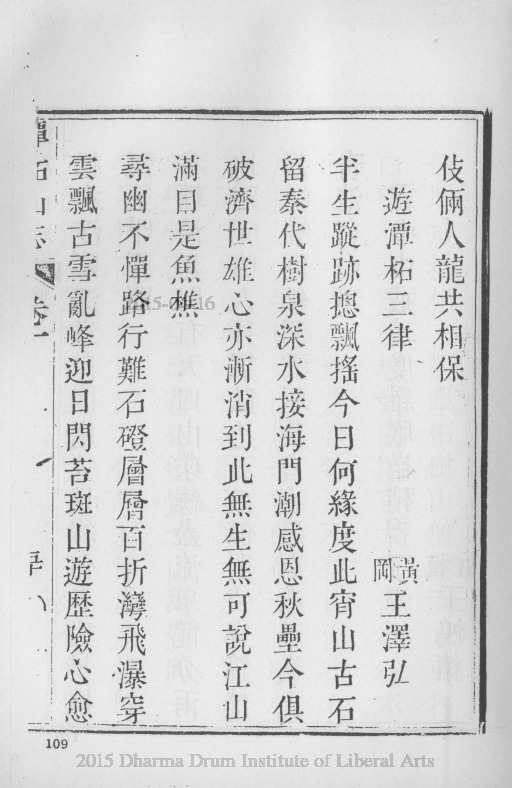 伎倆人龍共相保
遊潭柘三律 黃岡王澤弘
半生蹤跡揔飄搖今日何緣度此宵山古石
留秦代樹泉深水接海門潮感恩秋壘今俱
破濟世雄心亦漸消到此無生無可說江山
滿目是魚樵
尋幽不憚路行難石磴層層百折灣飛瀑穿
雲飄古雪亂峰迎日閃苔斑山遊歷險心愈
潭柘山志 卷
109
2015 Dharma Drum Institute of Liberal Arts